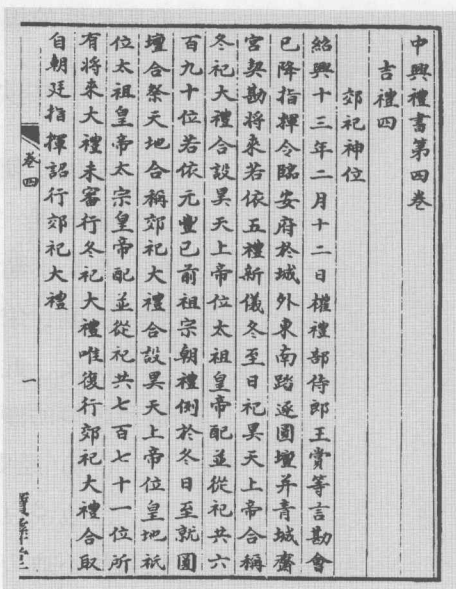 中興禮書第四卷
吉禮四
郊祀神位
紹興十三年二月十二日權禮部侍郎王賞等言勘會
已降指揮令臨安府於城外東南踏逐圜壇并青城齋
宮契勘將來若依五禮新儀冬至日祀昊天上帝合稱
冬祀大禮合設昊天上帝位太祖皇帝配並從祀共六
百九十位若依元豐已前祖宗朝禮例於冬日至就圜
壇合祭天地合稱郊祀大禮合設昊天上帝位皇地祇
位太祖皇帝太宗皇帝配並從祀共七百七十一位所
有將來大禮未審行冬祀大禮唯復行郊祀大禮合取
自朝廷指揮詔行郊祀大禮
卷四
一